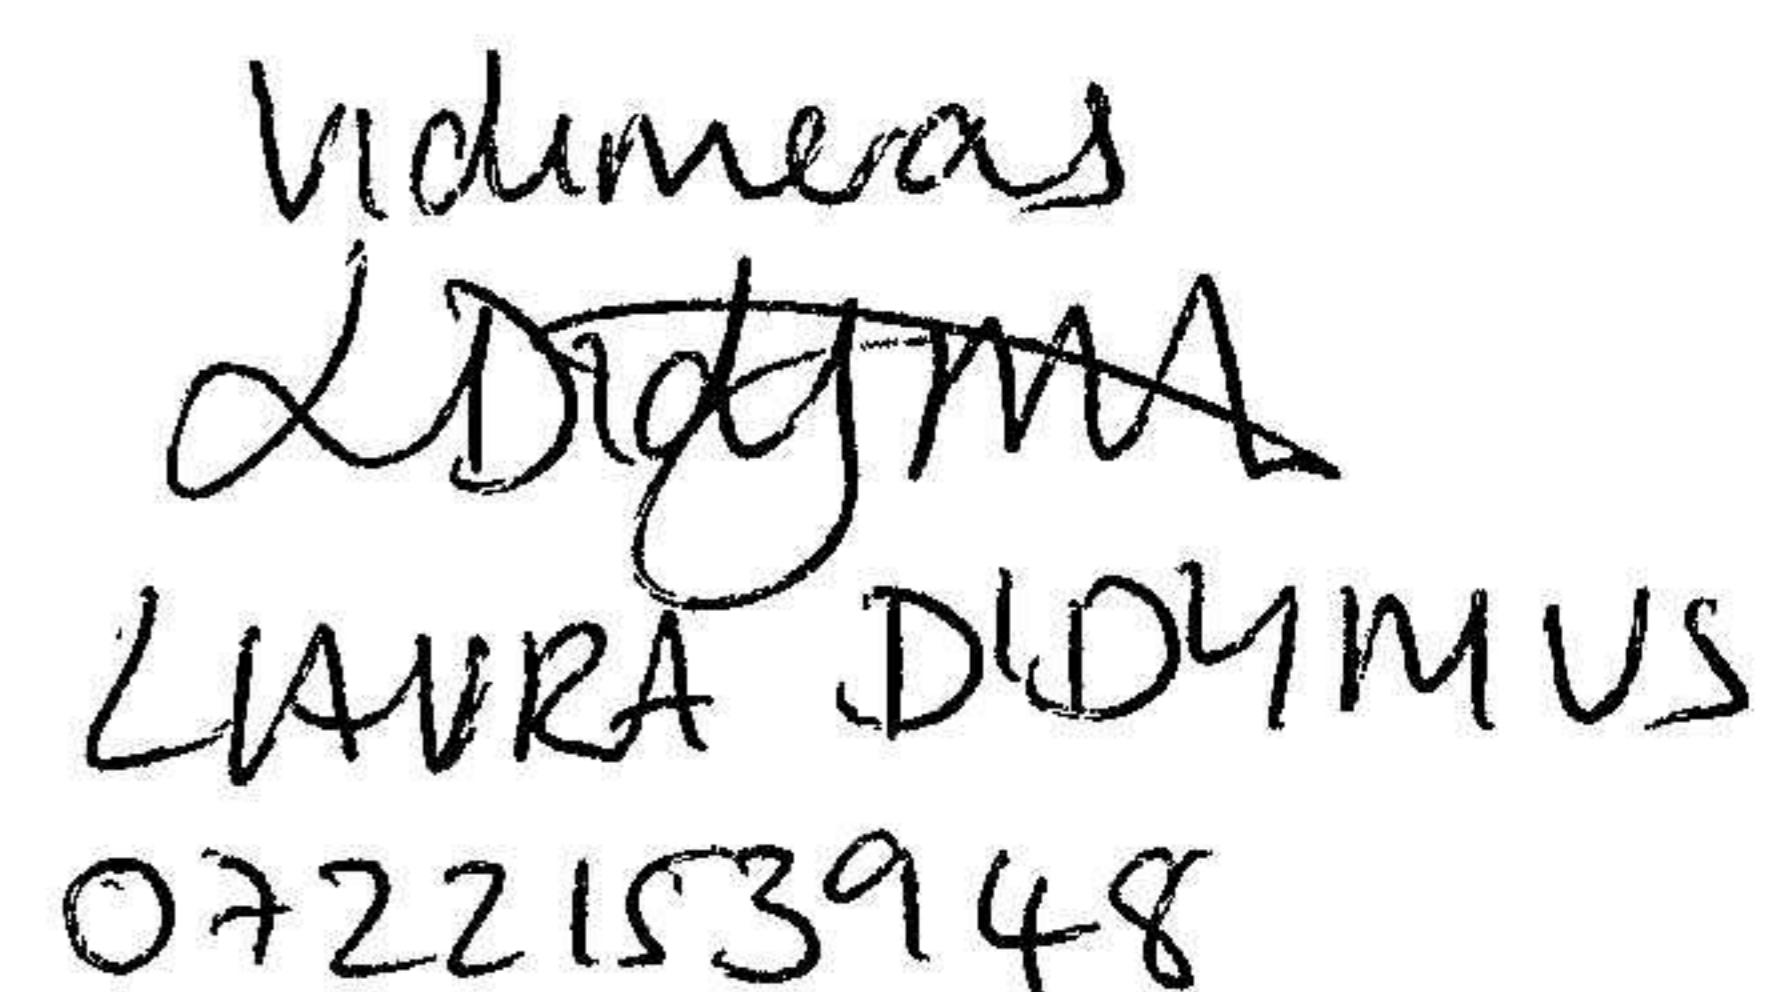 Vidimeras
L Didyms
LAURA DIDYMUS
0722153948